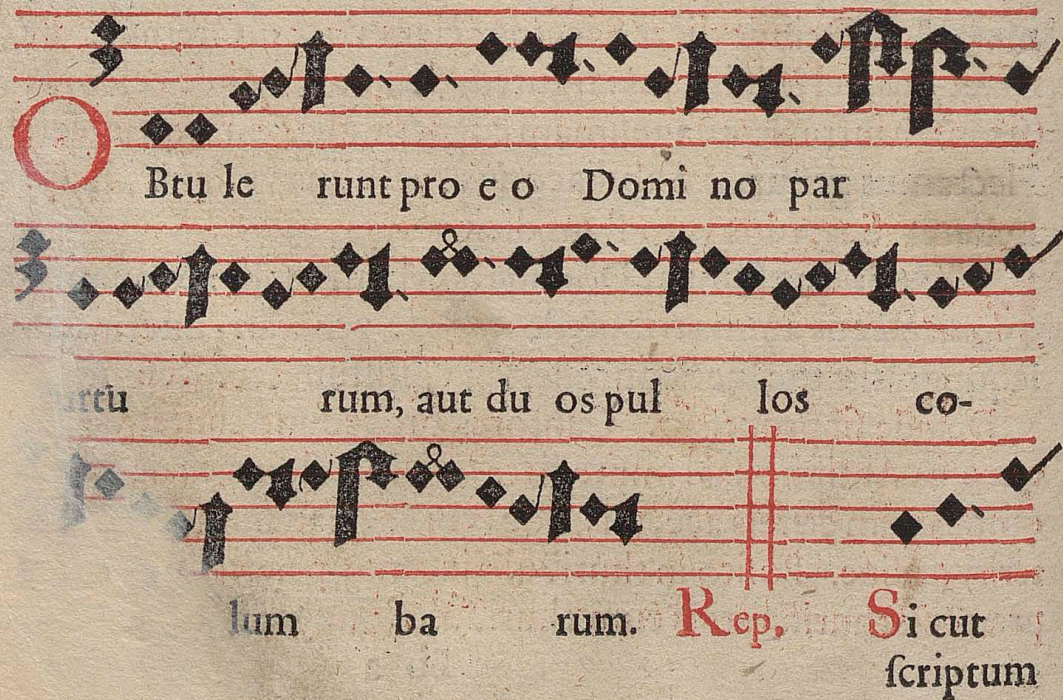 OBtu le runt pro e o Domi no par
rum, aut du os pul los co-
lum ba rum. Rep. Si cut
ſcriptum